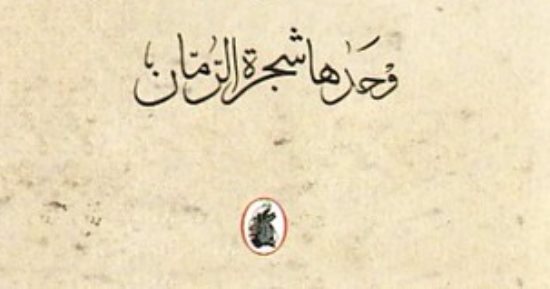 وَحدَها شجرة الرُّمّان